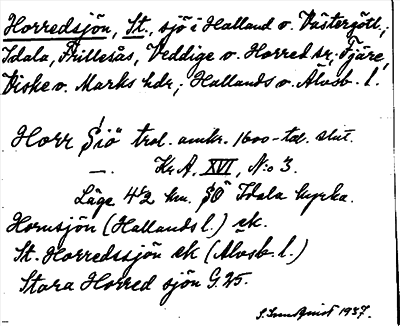 Horredsjön, St., sjö i Halland o. Västergötl.;
Idala, Frillesås, Veddige o. Horred sr; Fjäre,
Viske o. Marks hdr; Hallands o. Älvsb. l.
Horr Siö trol. omkr. 1600-tal. slut.
—.— Kr.A. XVI, N:o 3.
Läge 4½ km. SO Idala kyrka.
Hornsjön (Hallands l.) ek.
St. Horredssjön ek (Älvsb. l.)
Stora Horred sjön G. 25.
1937.